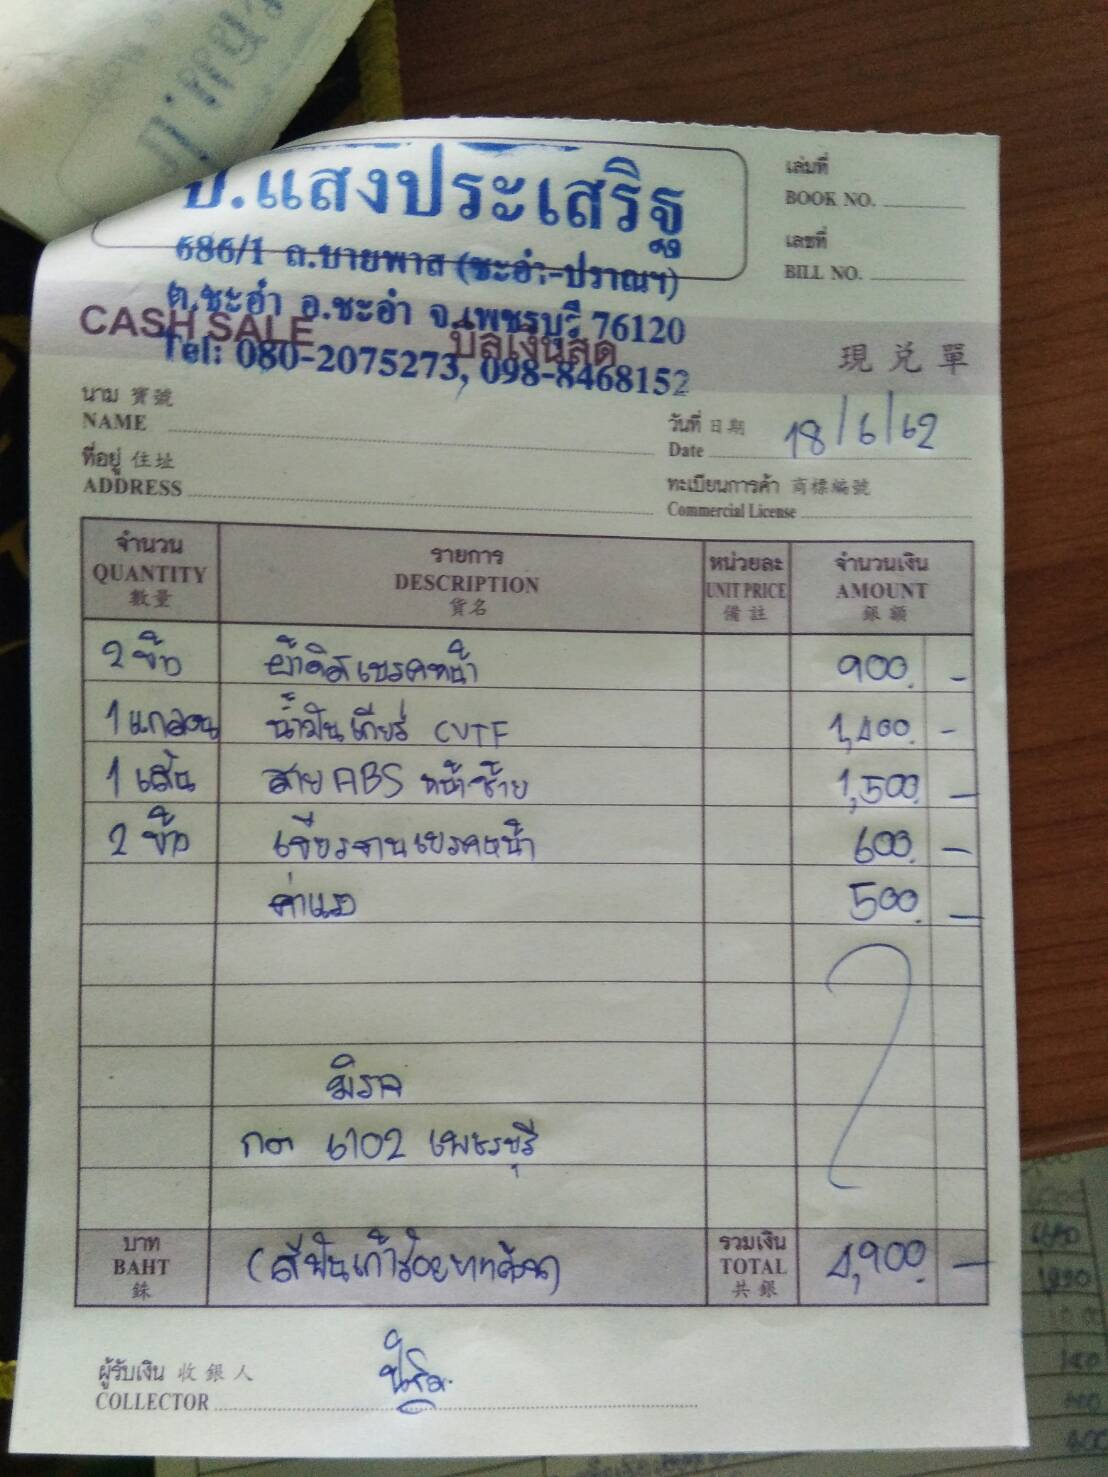 ป.แสงประเสริฐ
686/1 ถ.บายพาส (ชะอำ-ปราณฯ)
ต.ชะอำ อ.ชะอำ จ.เพชรบุรี 76120
Tel: 080-2075273, 098-8468152
เล่มที่
BOOK NO.
เลขที่
BILL NO.
CASH SALE บิลเงินสด 現兑單
นาม 寶號
NAME
วันที่ 日期
Date 18/6/62
ที่อยู่ 住址
ADDRESS
ทะเบียนการค้า 商標編號
Commercial License
จำนวน รายการ หน่วยละ จำนวนเงิน
QUANTITY DESCRIPTION UNIT PRICE AMOUNT
數量 貨名 備註 銀額
2 ชิ้น ผ้าดิสเบรคหน้า 900.-
1 แกลอน น้ำมันเกียร์ CVTF 1,400.-
1 เส้น สาย ABS หน้าซ้าย 1,500.-
2 ชิ้น เจียรจานเบรคหน้า 600.-
ค่าแรง 500.-
มิราจ
กต 6102 เพชรบุรี
บาท
BAHT (สี่พันเก้าร้อยบาทถ้วน)
銖
รวมเงิน
TOTAL 4,900.-
共銀
ผู้รับเงิน 收銀人
COLLECTOR